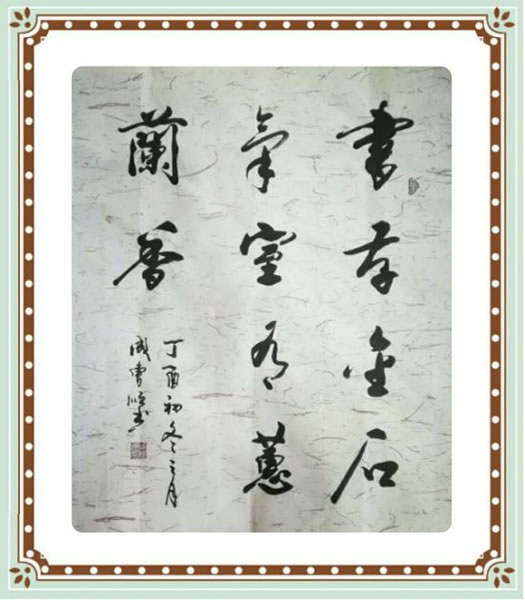 書存金石
氣室有蕙
蘭香
丁酉初冬之月
成曹順書